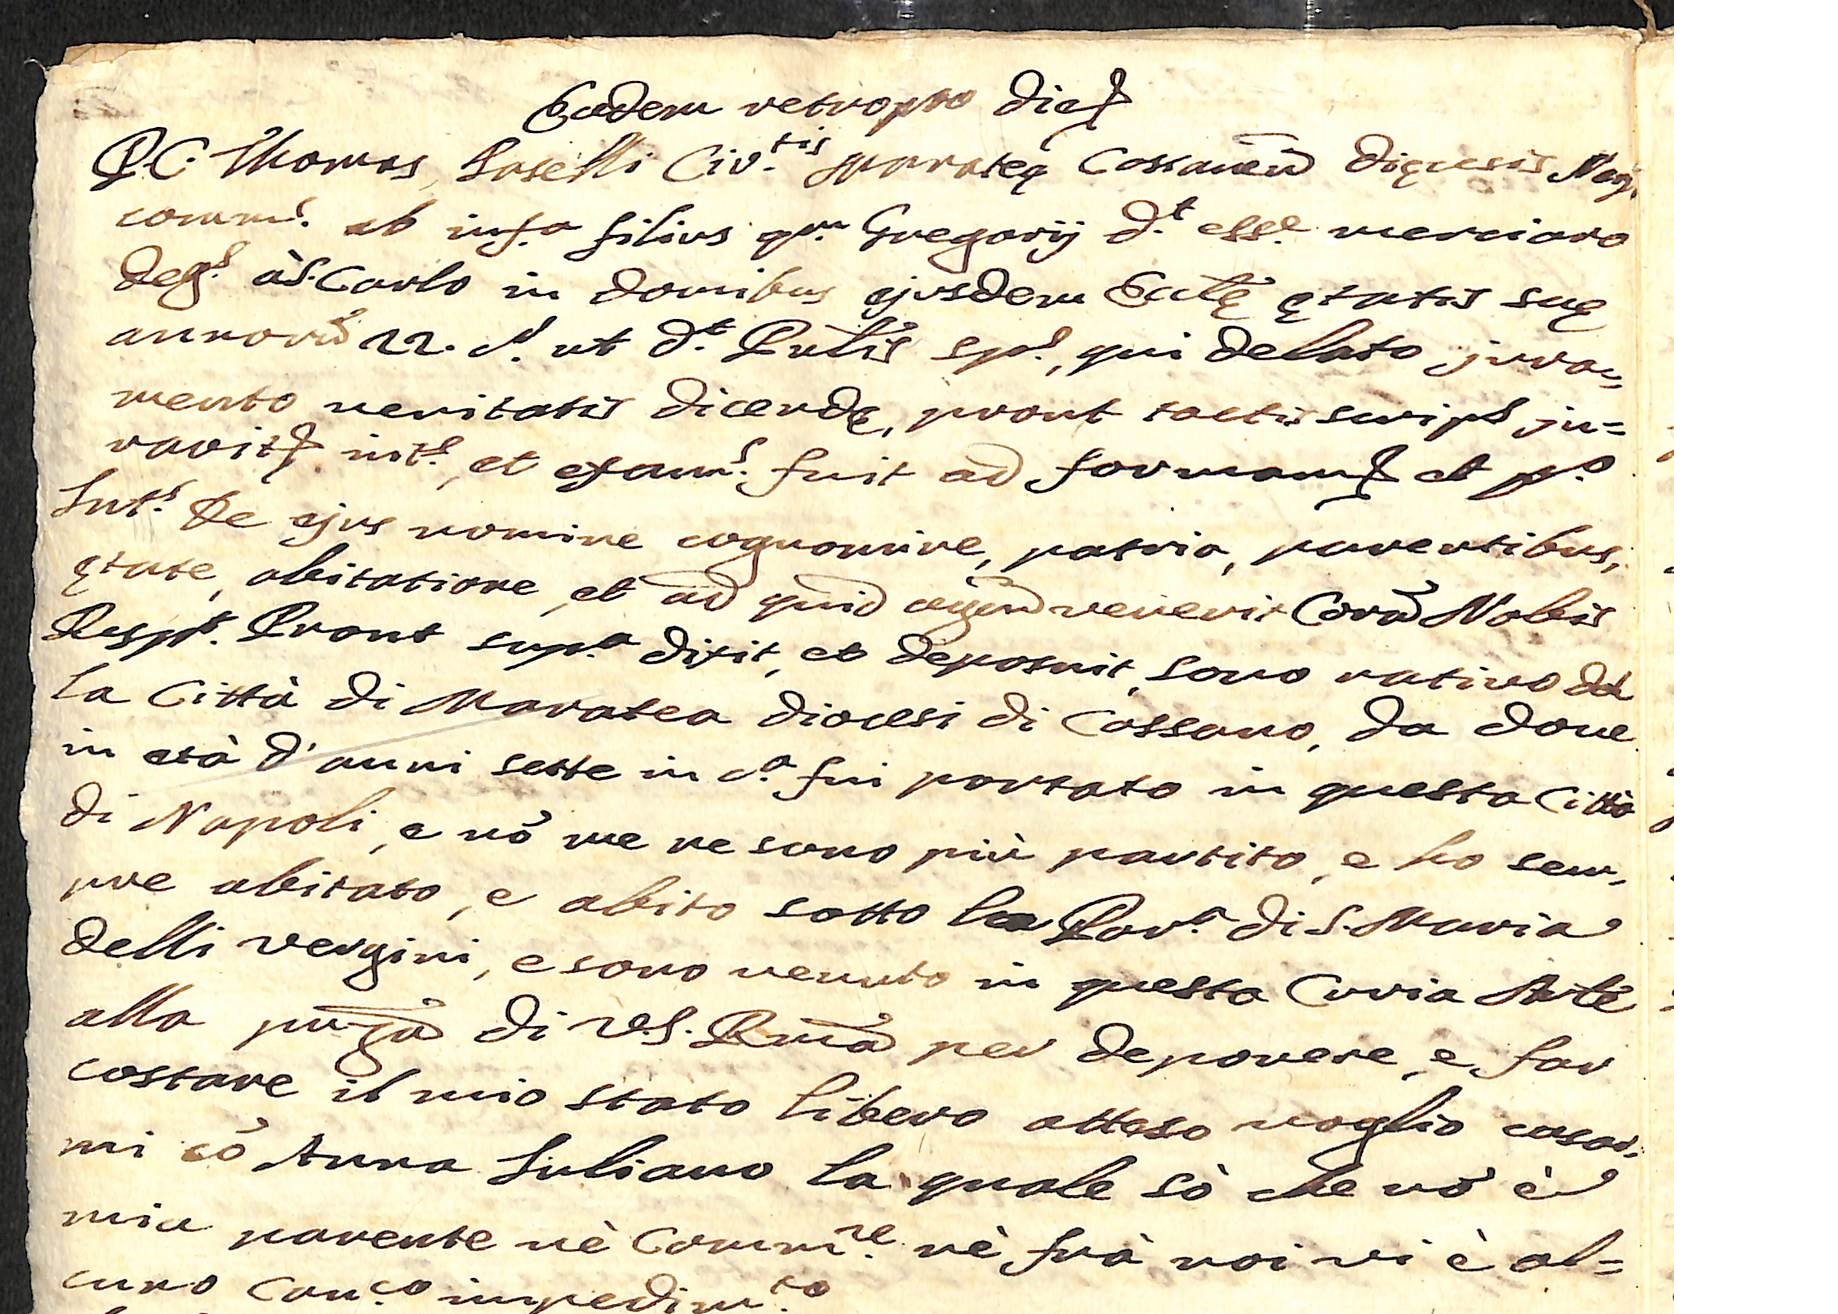 Eadem retropto die
D.C. Thomas Loselli Civ.tis Marateę Cassanen dięcesis Neap.
comm.s ab inf.a filius qm. Gregorij d.t esse merciaro
deg.s à S. Carlo in domibus ejusdem Ecclę ętatis suę
annorū 22. c.a ut d.t Pntis sp.s, qui delato jura,,
mento veritatis dicendę, prout tactis scrip.s ju=
ravit int.s, et exam.s fuit ad formam et p.o
Int.s de ejus nomine cognomine, patria, parentibus,
ętate, abitatione, et ad quid agend venerit Corā Nobis
Resp.t Prout sup.a dixit, et deposuit, sono nativo del
la Città di Maratea diocesi di Cassano, da dove
in età d'anni sette in c.a fui portato in questa Città
di Napoli, e nō me ne sono più partito, e ho sem,
pre abitato, e abito sotto la Parr.a di S. Maria
delli Vergini, e sono venuto in questa Curia Arcle
alla pnza di V.S. Rma per deponere, e far
costare il mio stato libero atteso voglio casar,
mi cō Anna Iuliano la quale sò che nō è
mia parente nè Comm.re nè frà noi vi è al=
cuno Can.co impedim.to